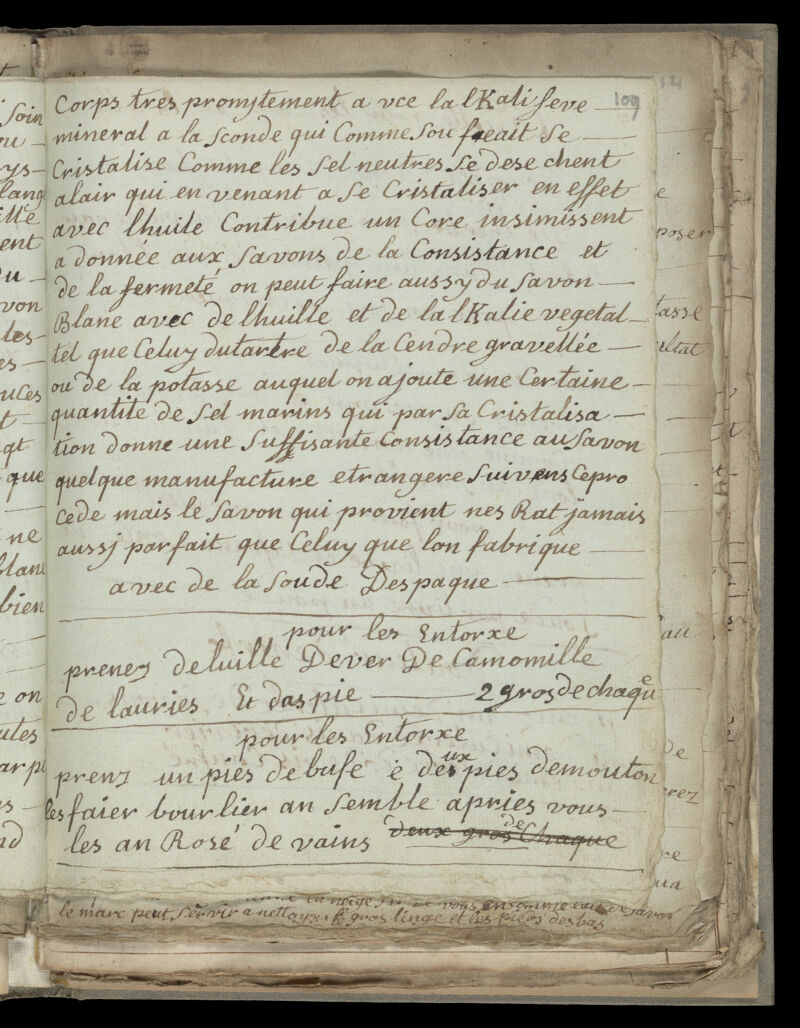 109
Corps tres promptement a vce lalKali seve
mineral a la sconde qui Comme sou freait se
Cristalise Comme les sel neutres se dese chent
alair qui en venant a se Cristaliser en effet
avec lhuile Contribue un Core insimissent
a donnée aux savons de la Consistance et
de la fermeté on peut faire aussy du savon
Blanc avec de lhuille et de lalKalie vegetal
tel que Celuy dutartre de la Cendre gravellée
ou de la potasse auquel on ajoute une Certaine
quantite de sel marins qui par sa Cristalisa
tion donne une suffisante Consistance au savon
quelque manufacture etrangere suivens Cepro
cede mais le savon qui provient nes Rat jamais
aussj parfait que Celuy que lon fabrique
avec de la soude Despaque
pour les Entorxe
prenez deluille Dever De Camomille
de lauries Et daspie 2 gros de chaque
pour les Entorxe
prenz un pies debufe è deux pies demouton
les faier bourlier an semble apries vous
les an Rosé de vains deux gros de Chaque
le marc peut servir a nettoyer le gros linge et les pieds des bas